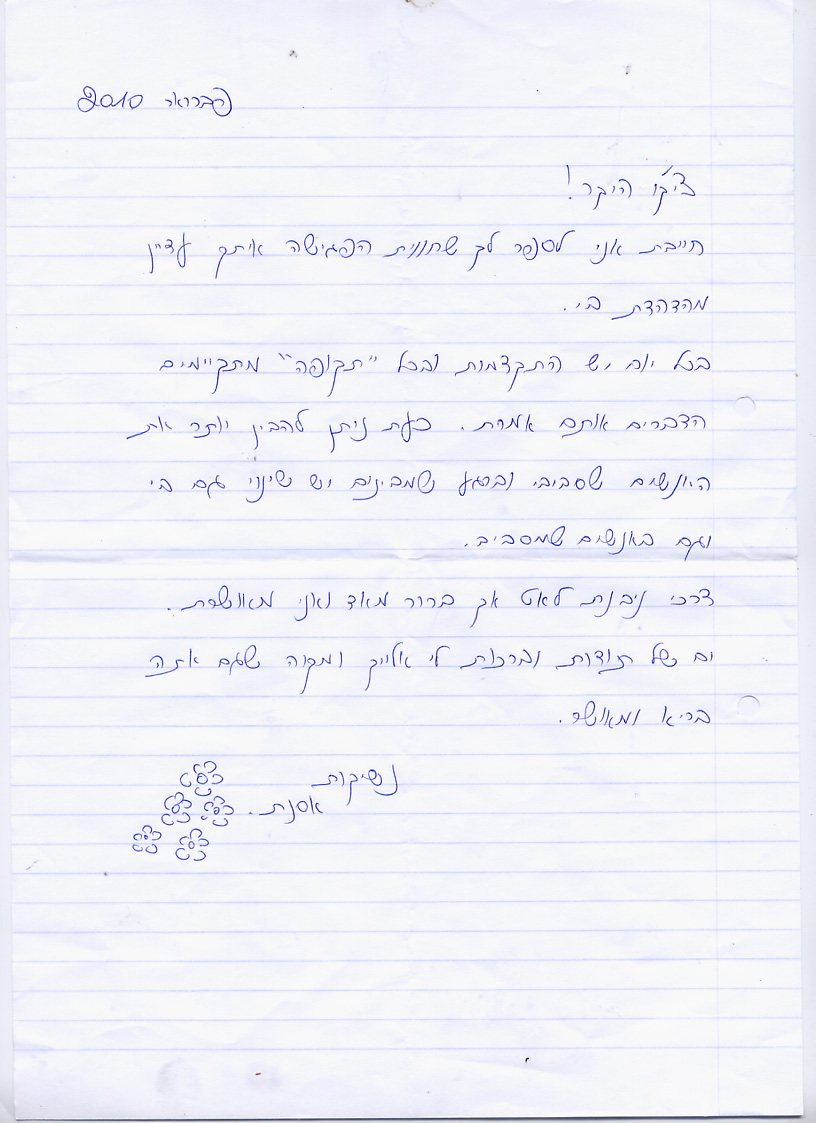 פברואר 2010
צ'יקו היקר!
חייבת אני לספר לך שחווית הפגישה איתך עדיין
מהדהדת בי.
בכל יום יש התקדמות ובכל "תקופה" מתקיימים
הדברים אותם אמרת. כעת ניתן להבין יותר את
האנשים שסביבי וברגע שמבינים יש שינוי גם בי
וגם באנשים שמסביב.
דרכי ניבנת לאט אך ברור מאד ואני מאושרת.
ים של תודות וברכות לי אלייך ומקוה שגם אתה
בריא ומאושר.
נשיקות
אסנת.